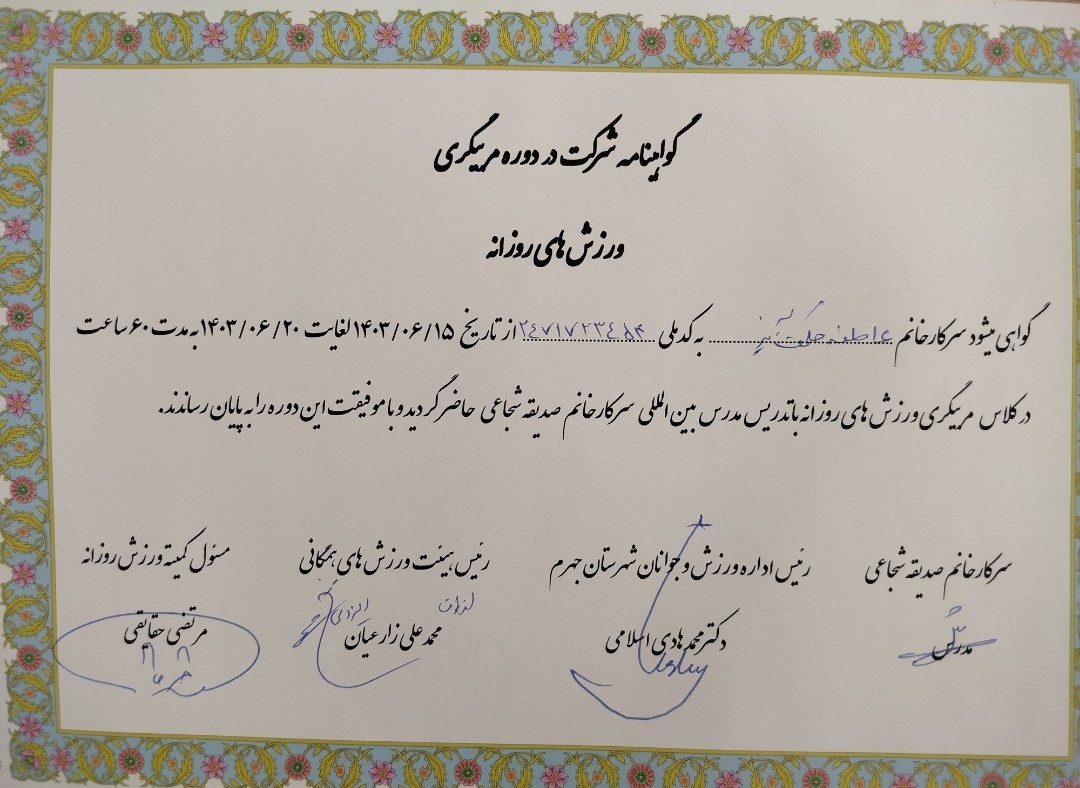 گواهینامه شرکت در دوره مربیگری
ورزش های روزانه
گواهی میشود سرکار خانم عاطفه حکمت به کد ملی از تاریخ ۱۴۰۳/۰۶/۱۵ لغایت ۱۴۰۳/۰۶/۲۰ به مدت ۶۰ ساعت
در کلاس مربیگری ورزش های روزانه با تدریس مدرس بین المللی سرکار خانم صدیقه شجاعی حاضر گردید و با موفقیت این دوره را به پایان رساندند.
سرکار خانم صدیقه شجاعی
مدرس
رئیس اداره ورزش و جوانان شهرستان جهرم
دکتر محمد هادی اسلامی
رئیس هیئت ورزش های همگانی
محمد علی زارعیان
مسئول کمیته ورزش روزانه
مرتضی حقایقی